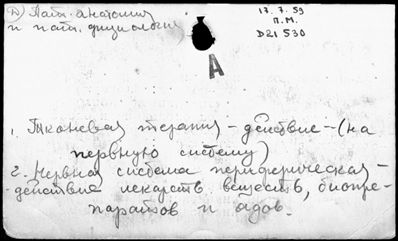 Д) Пат. анатомия
и пат. физиология
17. 7. 59
П.М.
D21530
А
1. Тканевая терапия – действие – (на
нервную систему)
2. Нервная система периферическая –
– действие лекарств. веществ, биопре-
паратов и ядов.